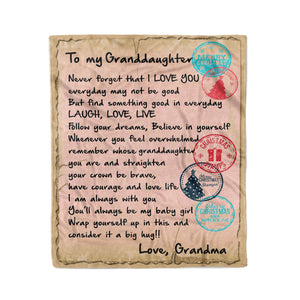 To my Granddaughter
Never forget that I LOVE YOU
everyday may not be good
But find something good in everyday
LAUGH, LOVE, LIVE
Follow your dreams, Believe in yourself
Whenever you feel overwhelmed
remember whose granddaughter
you are and straighten
your crown be brave,
have courage and love life
I am always with you
You'll always be my baby girl
Wrap yourself up in this and
consider it a big hug!!
Love, Grandma
CHRISTMAS
CHRISTMAS
CHRISTMAS
CHRISTMAS